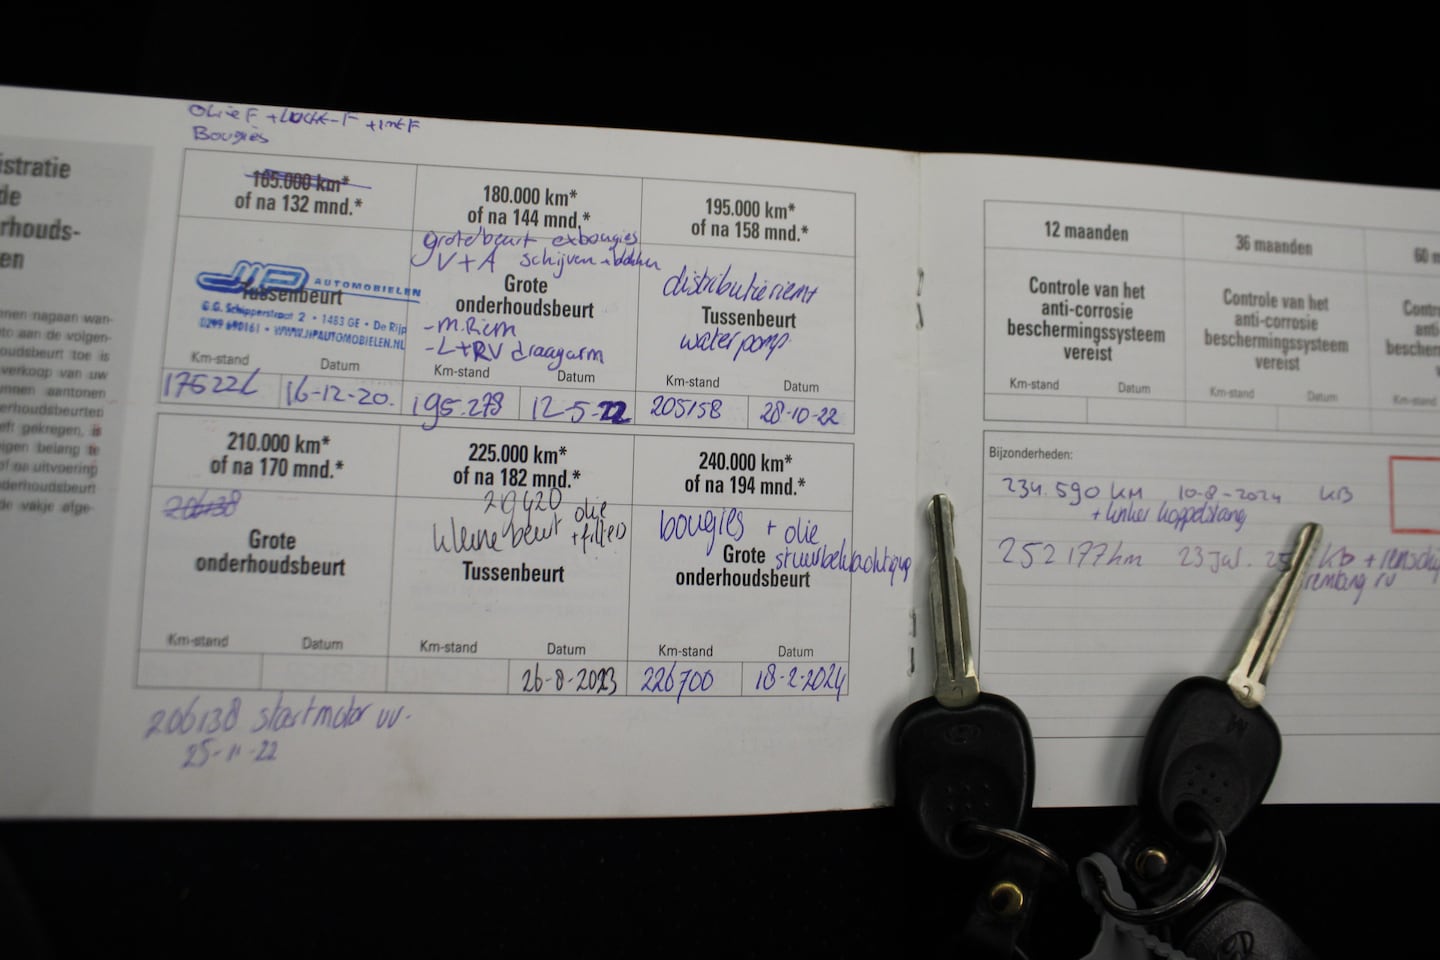 istratie
de
rhouds-
en
nnen nagaan wan-
to aan de volgen-
oudsbeurt toe is
verkoop van uw
nnen aantonen
erhoudsbeurten
eft gekregen, is
eigen belang te
of na uitvoering
derhoudsbeurt
de vakje afge-
Olie F + Lucht-F + int F
Bougies
165.000 km*
of na 132 mnd.*
JP AUTOMOBIELEN
Tussenbeurt
G.G. Schipperstraat 2 • 1483 GE • De Rijp
0299 690161 • WWW.JPAUTOMOBIELEN.NL
Km-stand Datum
16-12-20.
180.000 km*
of na 144 mnd.*
grote beurt ex bougies
V+A schijven + blokken
Grote
onderhoudsbeurt
-M.Riem
-L+RV draagarm
Km-stand Datum
195.278 12-5-22
195.000 km*
of na 158 mnd.*
distributieriem +
Tussenbeurt
waterpomp
Km-stand Datum
205158 28-10-22
210.000 km*
of na 170 mnd.*
206138
Grote
onderhoudsbeurt
Km-stand Datum
225.000 km*
of na 182 mnd.*
kleine beurt olie
+ filter
Tussenbeurt
Km-stand Datum
26-8-2023
240.000 km*
of na 194 mnd.*
bougies + olie
Grote
onderhoudsbeurt
Km-stand Datum
226700 18-2-2024
206138 startmotor vv.
25-11-22
12 maanden
Controle van het
anti-corrosie
beschermingssysteem
vereist
Km-stand Datum
36 maanden
Controle van het
anti-corrosie
beschermingssysteem
vereist
Km-stand Datum
60 m
Contro
anti-
bescherm
Km-stand
Bijzonderheden:
234.590 KM 10-8-2024 KB
+ linker koppelstang
252177km 23 Jul. 25 kb +